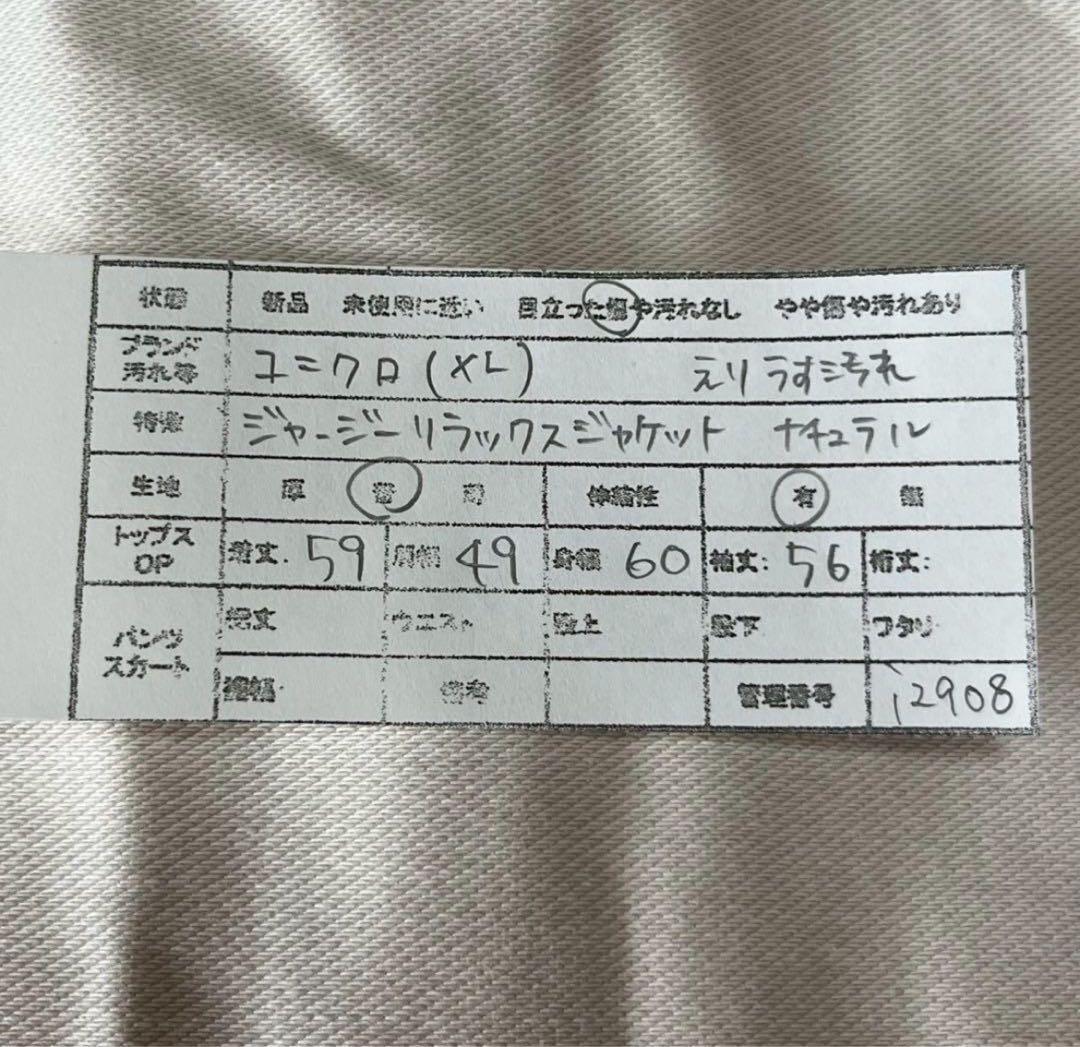 状態 新品 未使用に近い 目立った傷や汚れなし やや傷や汚れあり
ブランド 汚れ等 ユニクロ(XL) えり うすヨゴれ
特徴 ジャージーリラックスジャケット ナチュラル
生地 厚 普 薄 伸縮性 有 無
トップス OP 着丈. 59 肩幅 49 身幅 60 袖丈: 56 裄丈:
パンツ スカート 総丈 ウエスト 股上 股下 ワタリ
裾幅 備考 管理番号 i2908